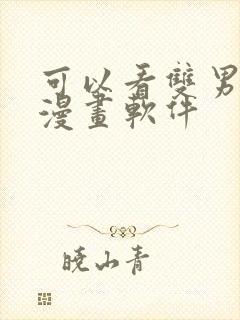 可以看雙男
漫畫軟件
曉山青